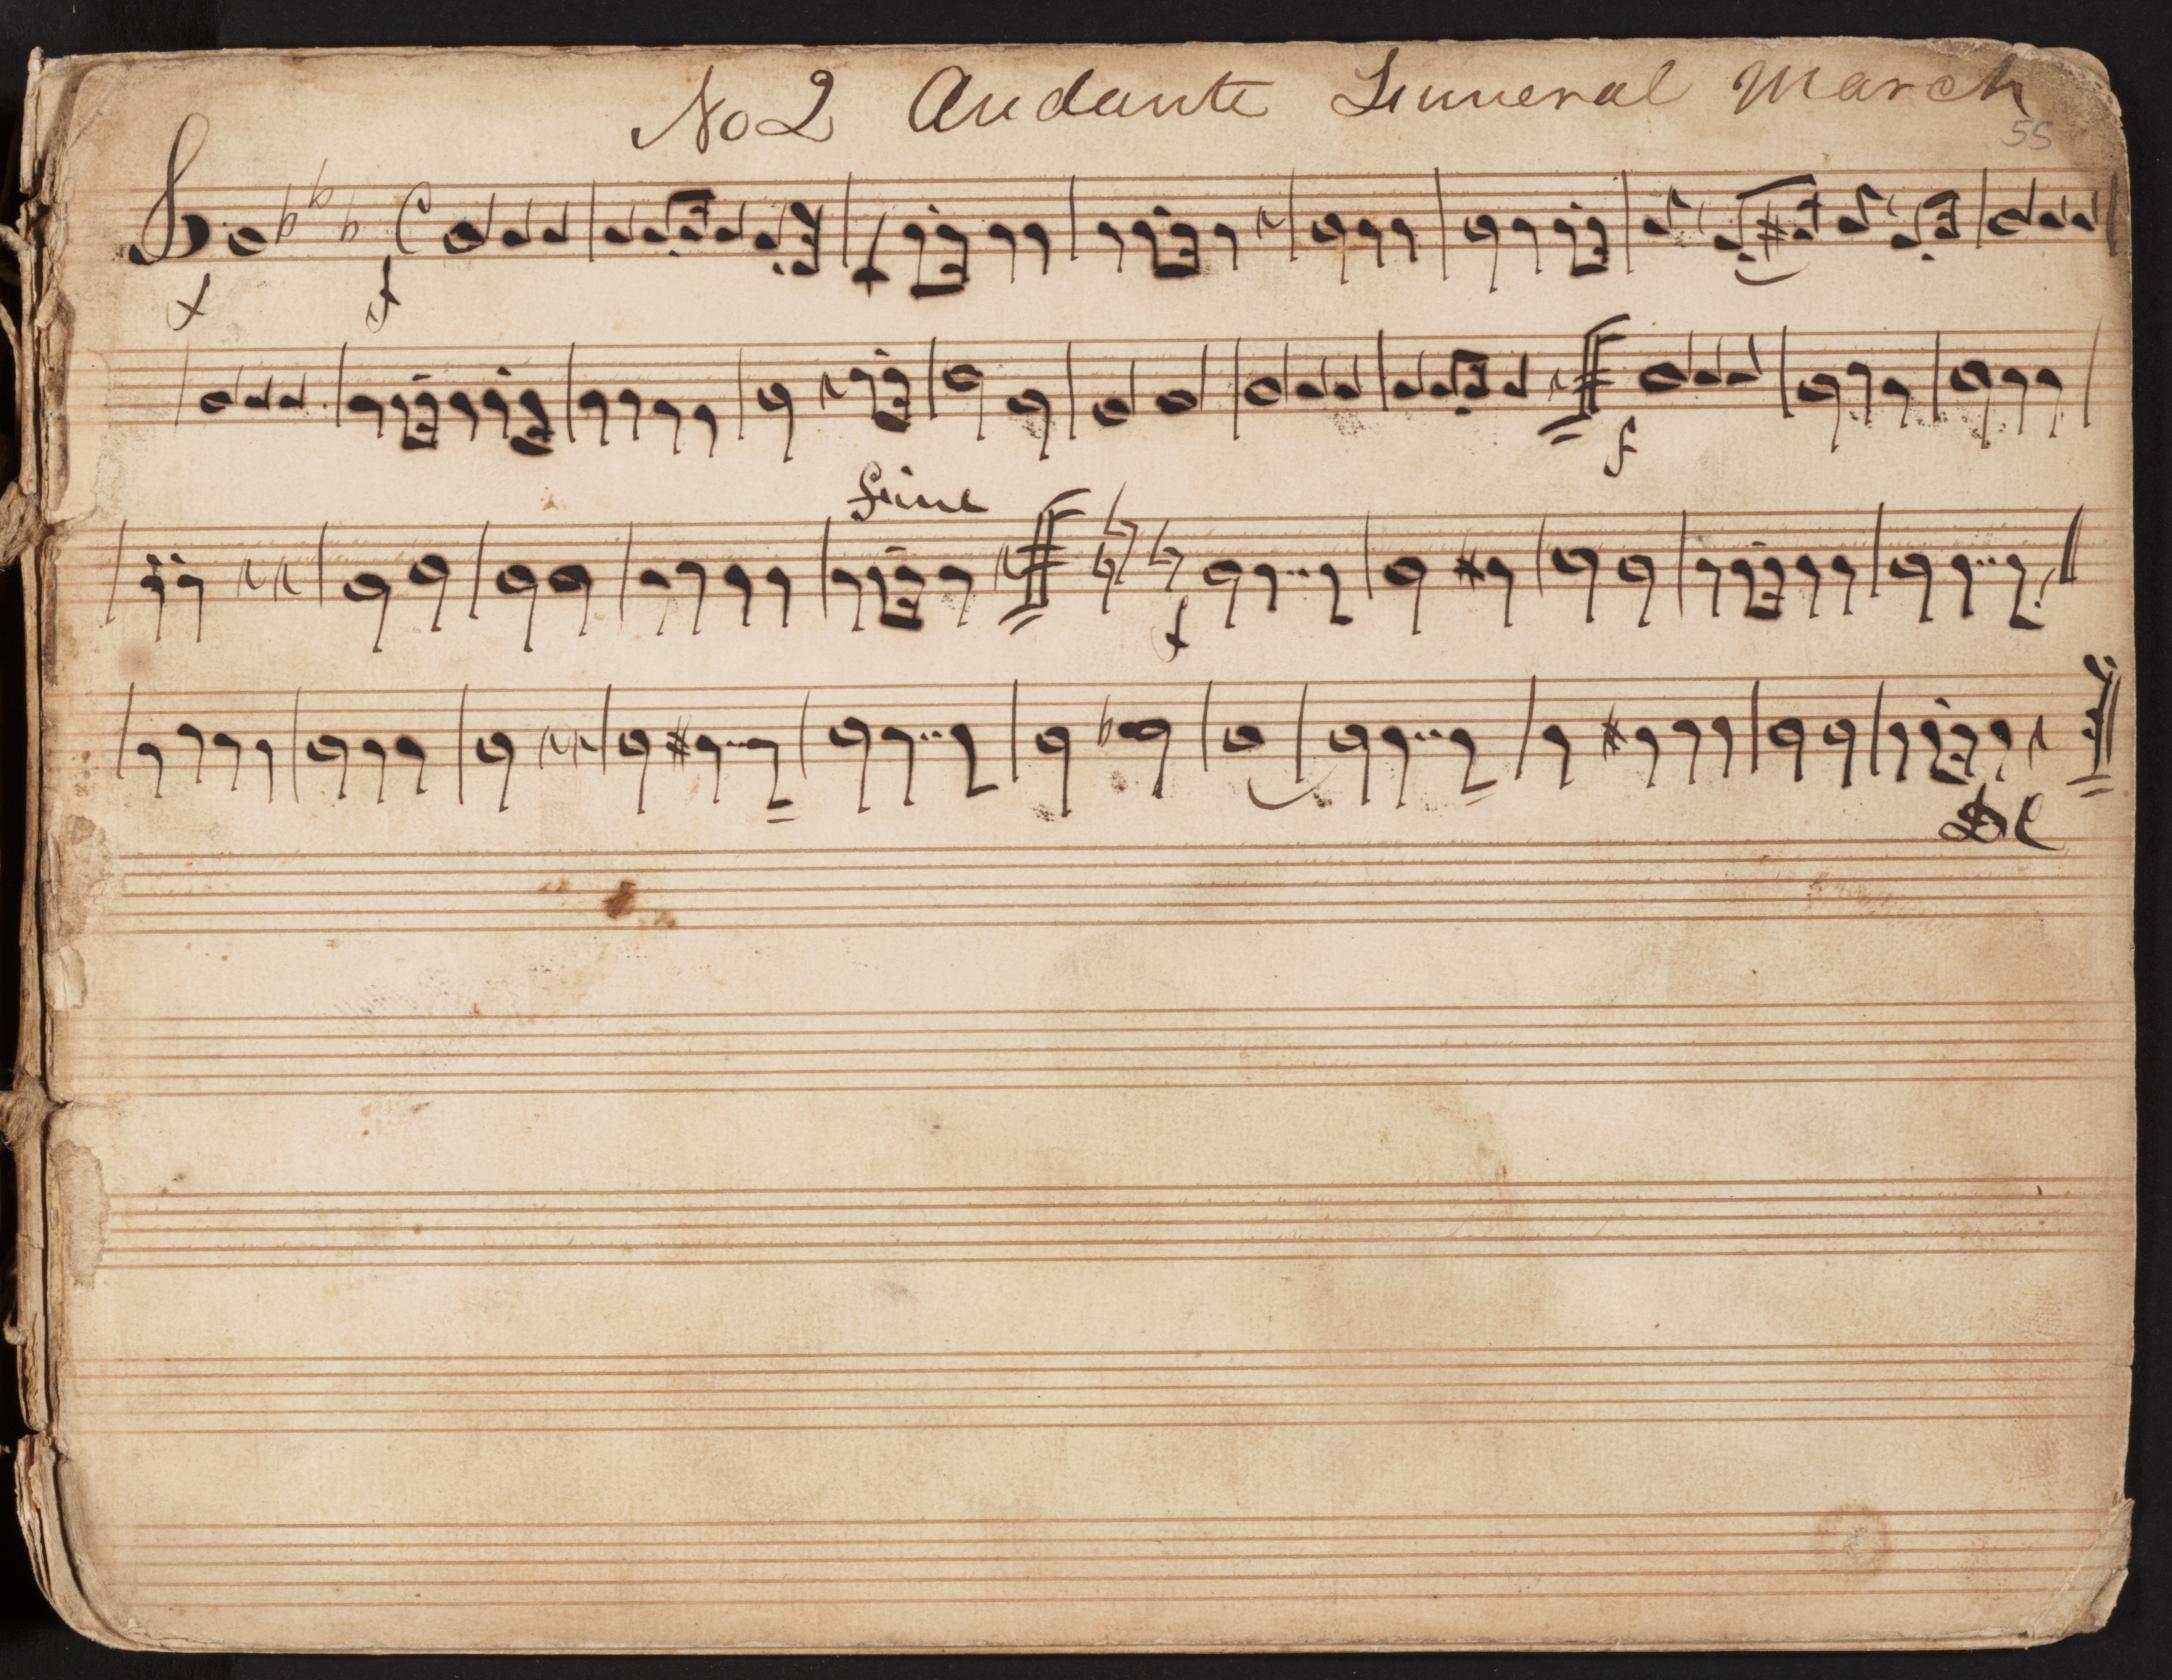 No 2 Andante Funneral March
55
f
f
fine
f
DC